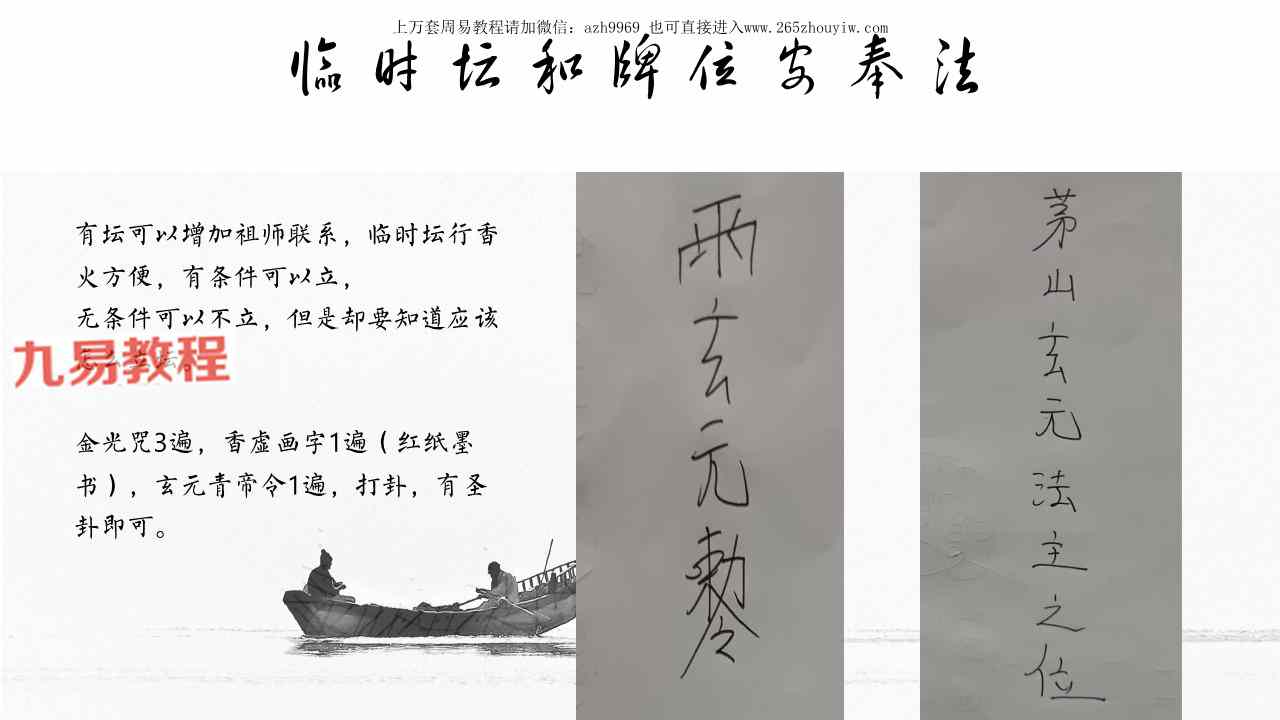 上万套周易教程请加微信：azh9969 也可直接进入www.265zhouyiw.com
临时坛和牌位安奉法
有坛可以增加祖师联系，临时坛行香
火方便，有条件可以立，
无条件可以不立，但是却要知道应该
怎么立坛。
九易教程
金光咒3遍，香虚画字1遍（红纸墨
书），玄元青帝令1遍，打卦，有圣
卦即可。
雨玄元勅令
茅山玄元法主之位